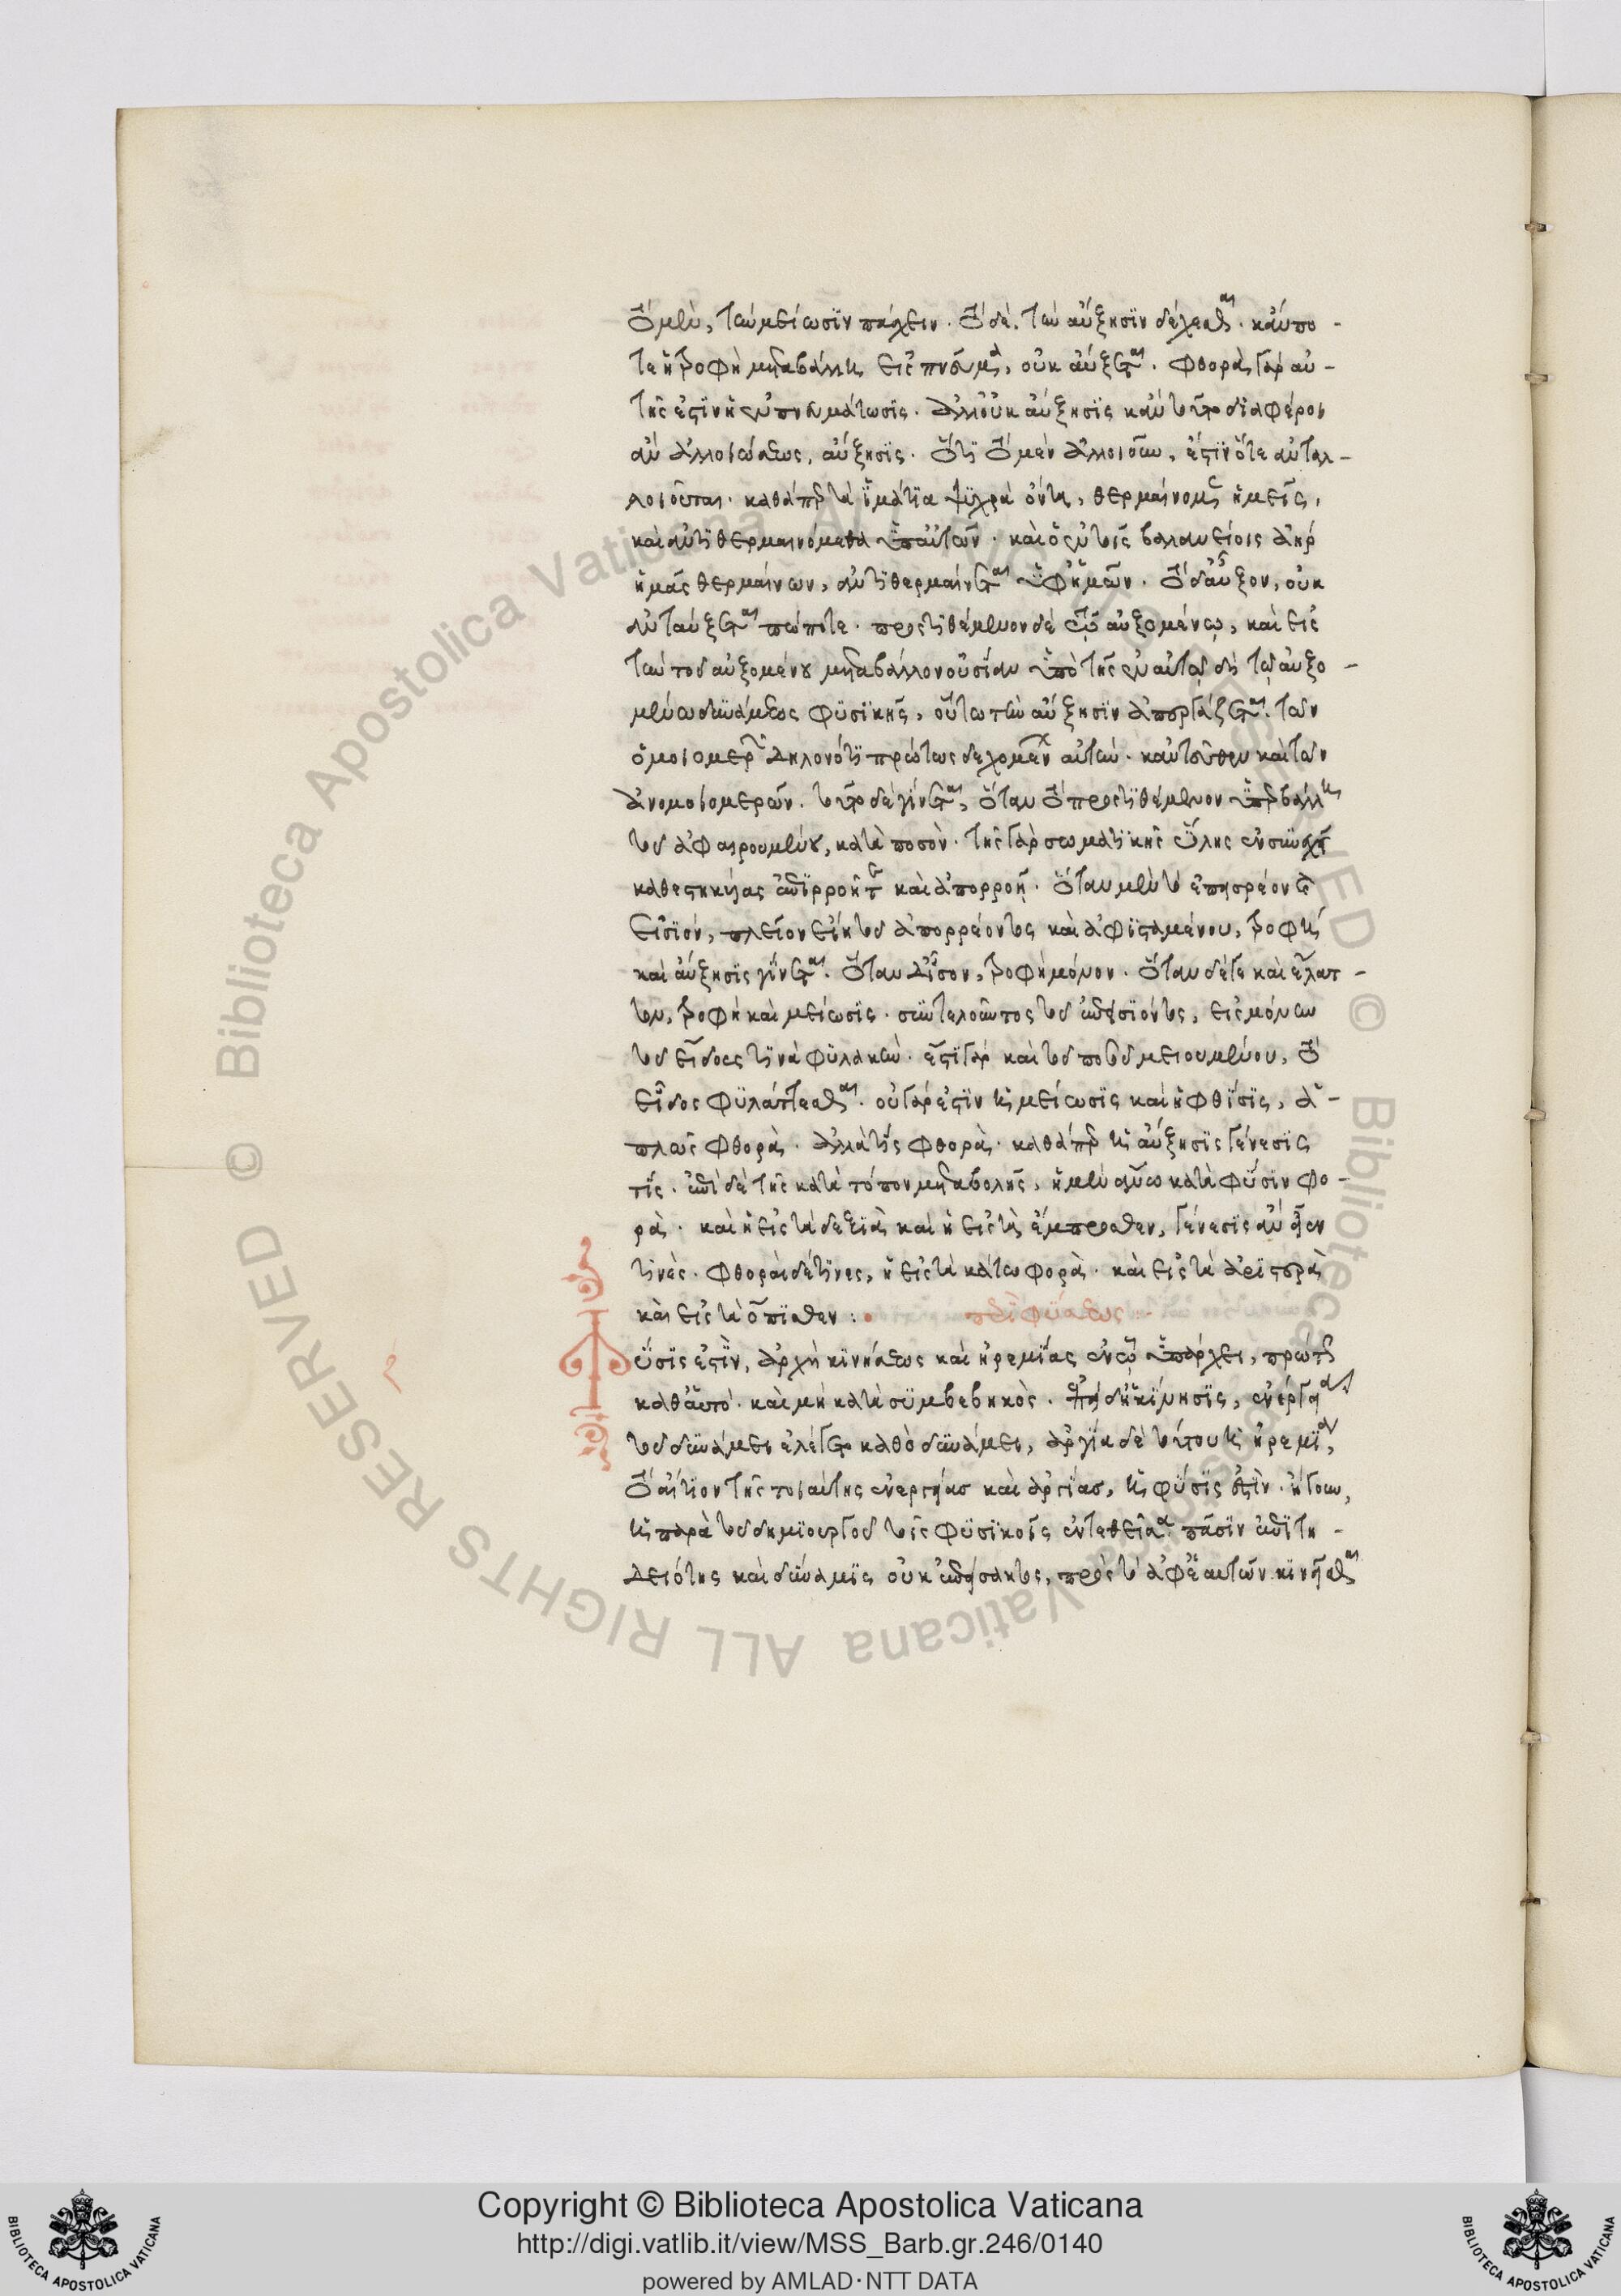 τὸ μὲν, τὴν μείωσιν πάσχειν. τὸ δὲ, τὴν αὔξησιν δέχεσθαι. κἄν πο-
τε ἡ τροφὴ μεταβάλλη εἰς πνεῦμα, οὐκ αὔξεται. φθορὰ γὰρ αὐ-
τῆς ἐστὶν ἡ ἐκπνευμάτωσις. ἀλλ' οὐκ αὔξησις κἂν τούτω διαφέροι
ἂν ἀλλοιώσεως, αὔξησις. ὅτι τὸ μὲν ἀλλοιοῦν, ἔστιν ὅτε ἀνταλ-
λοιοῦται. καθάπερ τὰ ἱμάτια ψυχρὰ ὄντα, θερμαίνομεν ἡμεῖς,
καὶ ἀντιθερμαινόμεθα ὑπ' αὐτῶν. καὶ ὁ ἐν τοῖς βαλανείοις ἀὴρ
ἡμᾶς θερμαίνων, ἀντιθερμαίνεται ὑφ' ἡμῶν. τὸ δ' αὖξον, οὐκ
ἀνταύξεται πώποτε. προστιθέμενον δὲ τῷ αὐξομένῳ, καὶ εἰς
τὴν τοῦ αὐξομένου μεταβάλλον οὐσίαν ὑπὸ τῆς ἐν αὐτῷ δὴ τῷ αὐξο-
μένω δυνάμεως φυσικῆς, οὕτω τὴν αὔξησιν ἀπεργάζεται. τῶν
ὁμοιομερῶν δηλονότι πρώτως δεχομένων αὐτήν. κἀντεῦθεν καὶ τῶν
ἀνομοιομερῶν. τοῦτο δὲ γίνεται, ὅταν τὸ προστιθέμενον ὑπερβάλλη
τοῦ ἀφαιρουμένου, κατὰ ποσόν. τῆς γὰρ σωματικῆς ὕλης ἐν συνεχεῖ
καθεστηκυίας ἐπιρροῇ τε καὶ ἀπορροῇ. ὅταν μὲν τὸ ἐπεισρέον τε
εἰσιόν, πλεῖον εἴη τοῦ ἀπορρέοντος καὶ ἀφισταμένου, τροφή
καὶ αὔξησις γίνεται. ὅταν δ' ἴσον, τροφὴ μόνον. ὅταν δέ γε καὶ ἔλατ-
τον, τροφὴ καὶ μείωσις. συντελοῦντος τοῦ ἐπεισιόντος, εἰς μόνην
τοῦ εἴδους τινὰ φυλακήν. ἔστι γὰρ καὶ τοῦ ποσοῦ μειουμένου, τὸ
εἶδος φυλάττεσθαι. οὐ γάρ ἐστιν ἡ μείωσις καὶ ἡ φθίσις, ἁ-
πλῶς φθορὰ. ἀλλὰ τὶς φθορὰ. καθάπερ ἡ αὔξησις γένεσις
τίς. ἐπὶ δὲ τῆς κατὰ τόπον μεταβολῆς, ἡ μὲν ἄνω κατὰ φύσιν φο-
ρὰ. καὶ ἡ εἰς τὰ δεξιὰ καὶ ἡ εἰς τὰ ἔμπροσθεν, γένεσις ἂν εἶεν
τινὲς. φθοραὶ δέ τινες, ἡ εἰς τὰ κάτω φορὰ. καὶ εἰς τὰ ἀριστερὰ
καὶ εἰς τὰ ὄπισθεν :
περὶ φύσεως -
φύσις ἐστὶν, ἀρχὴ κινήσεως καὶ ἠρεμίας ἐν ᾧ ὑπάρχει, πρώτως
καθ' αὑτό. καὶ μὴ κατὰ συμβεβηκὸς. ἐπεὶ δὴ ἡ κίνησις, ἐνέργεια
τοῦ δυνάμει ἐλέγετο καθὸ δυνάμει, ἀργία δὲ τούτου ἡ ἠρεμία,
τὸ αἴτιον τῆς τοιαύτης ἐνεργείας καὶ ἀργίας, ἡ φύσις ἐστὶν. ἤγουν,
ἡ παρὰ τοῦ δημιουργοῦ τοῖς φυσικοῖς ἐντεθεῖσα πᾶσιν ἐπιτη-
δειότης καὶ δύναμις οὐκ ἐπείσακτος, πρὸς τὸ ἀφ' ἑαυτῶν κινῆσθαι
© Biblioteca Apostolica Vaticana ALL RIGHTS RESERVED
Copyright © Biblioteca Apostolica Vaticana
http://digi.vatlib.it/view/MSS_Barb.gr.246/0140
powered by AMLAD·NTT DATA
BIBLIOTECA APOSTOLICA VATICANA
BIBLIOTECA APOSTOLICA VATICANA